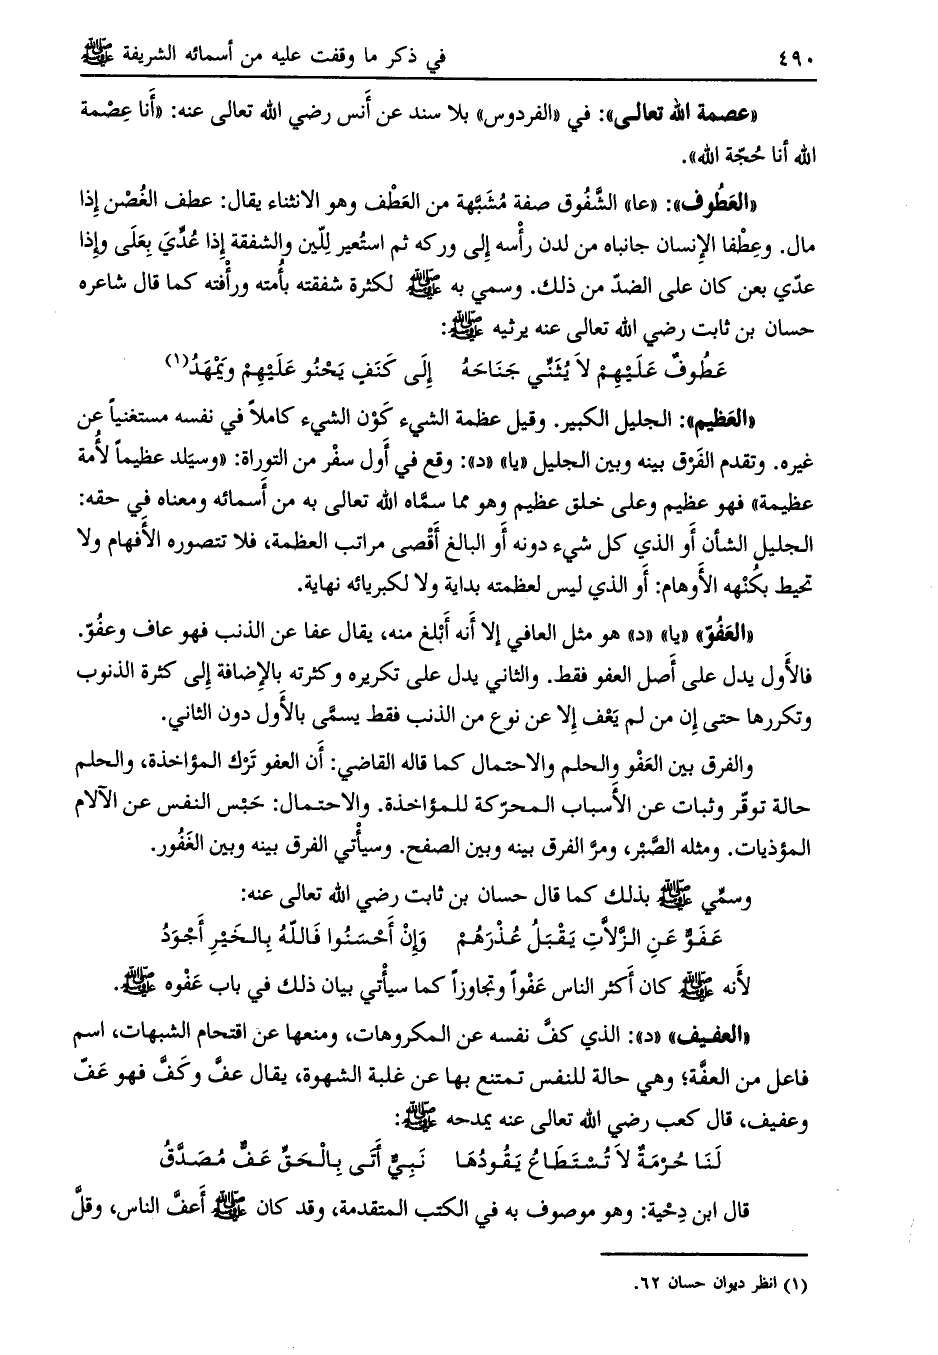 ٤٩٠ في ذكر ما وقفت عليه من أسمائه الشريفة ﷺ
«عصمة الله تعالى»: في «الفردوس» بلا سند عن أَنس رضي الله تعالى عنه: «أَنا عِصْمة
الله أنا حُجّة الله».
«العَطُوف»: «عا» الشَّفُوق صفة مُشَبَّهة من العَطْف وهو الانثناء يقال: عطف الغُصْن إِذا
مال. وعِطْفا الإِنسان جانباه من لدن رأْسه إِلى وركه ثم استُعير لِلّين والشفقة إِذا عُدِّيَ بِعَلَى وإِذا
عدّي بعن كان على الضدّ من ذلك. وسمي به ﷺ لكثرة شفقته بأُمته ورأْفته كما قال شاعره
حسان بن ثابت رضي الله تعالى عنه يرثيه ﷺ:
عَطُوفٌ عَلَيْهِمْ لاَ يُثَنِّي جَنَاحَهُ إِلَى كَنَفٍ يَحْنُو عَلَيْهِمْ ويَمْهَدُ(١)
«العَظيم»: الجليل الكبير. وقيل عظمة الشيء كَوْن الشيء كاملاً في نفسه مستغنياً عن
غيره. وتقدم الفَرْق بينه وبين الجليل «يا» «د»: وقع في أَول سفْر من التوراة: «وسيَلد عظيماً لأُمة
عظيمة» فهو عظيم وعلى خلق عظيم وهو مما سمَّاه الله تعالى به من أَسمائه ومعناه في حقه:
الجليل الشأن أَو الذي كل شيء دونه أَو البالغ أَقْصى مراتب العظمة، فلا تتصوره الأَفهام ولا
تحيط بكُنْهه الأَوهام: أَو الذي ليس لعظمته بداية ولا لكبريائه نهاية.
«العَفُوّ» «يا» «د» هو مثل العافي إلا أَنه أَبْلغ منه، يقال عفا عن الذنب فهو عاف وعفُوّ.
فالأَول يدل على أَصل العفو فقط. والثاني يدل على تكريره وكثرته بالإِضافة إِلى كثرة الذنوب
وتكررها حتى إِن من لم يَعْف إِلا عن نوع من الذنب فقط يسمَّى بالأَول دون الثاني.
والفرق بين العَفْو والحلم والاحتمال كما قاله القاضي: أَن العفو تَرْك المؤاخذة، والحلم
حالة توقّر وثبات عن الأَسباب المحرّكة للمؤاخذة. والاحتمال: حَبْس النفس عن الآلام
المؤذيات. ومثله الصَّبْر، ومرَّ الفرق بينه وبين الصفح. وسيأْتي الفرق بينه وبين الغَفُور.
وسمِّي ﷺ بذلك كما قال حسان بن ثابت رضي الله تعالى عنه:
عَفَوٌّ عَنِ الزلاَّتِ يَقْبَلُ عُذْرَهُمْ وَإِنْ أَحْسَنُوا فَاللَّهُ بِالخَيْرِ أَجْوَدُ
لأَنه ﷺ كان أَكثر الناس عَفْواً وتجاوزاً كما سيأْتي بيان ذلك في باب عَفْوه ﷺ.
«العفيف» «د»: الذي كفَّ نفسه عن المكروهات، ومنعها عن اقتحام الشبهات، اسم
فاعل من العفَّة؛ وهي حالة للنفس تمتنع بها عن غلبة الشهوة، يقال عفَّ وكَفَّ فهو عَفّ
وعفيف، قال كعب رضي الله تعالى عنه يمدحه ﷺ:
لَنَا حُرْمَةٌ لاَ تُسْتَطَاعُ يَقُودُهَا نَبِيٌّ أَتَى بِالْحَقِّ عَفٌّ مُصَدَّقُ
قال ابن دِحْية: وهو موصوف به في الكتب المتقدمة، وقد كان ﷺ أَعفَّ الناس، وقلَّ
(١) انظر ديوان حسان ٦٢.